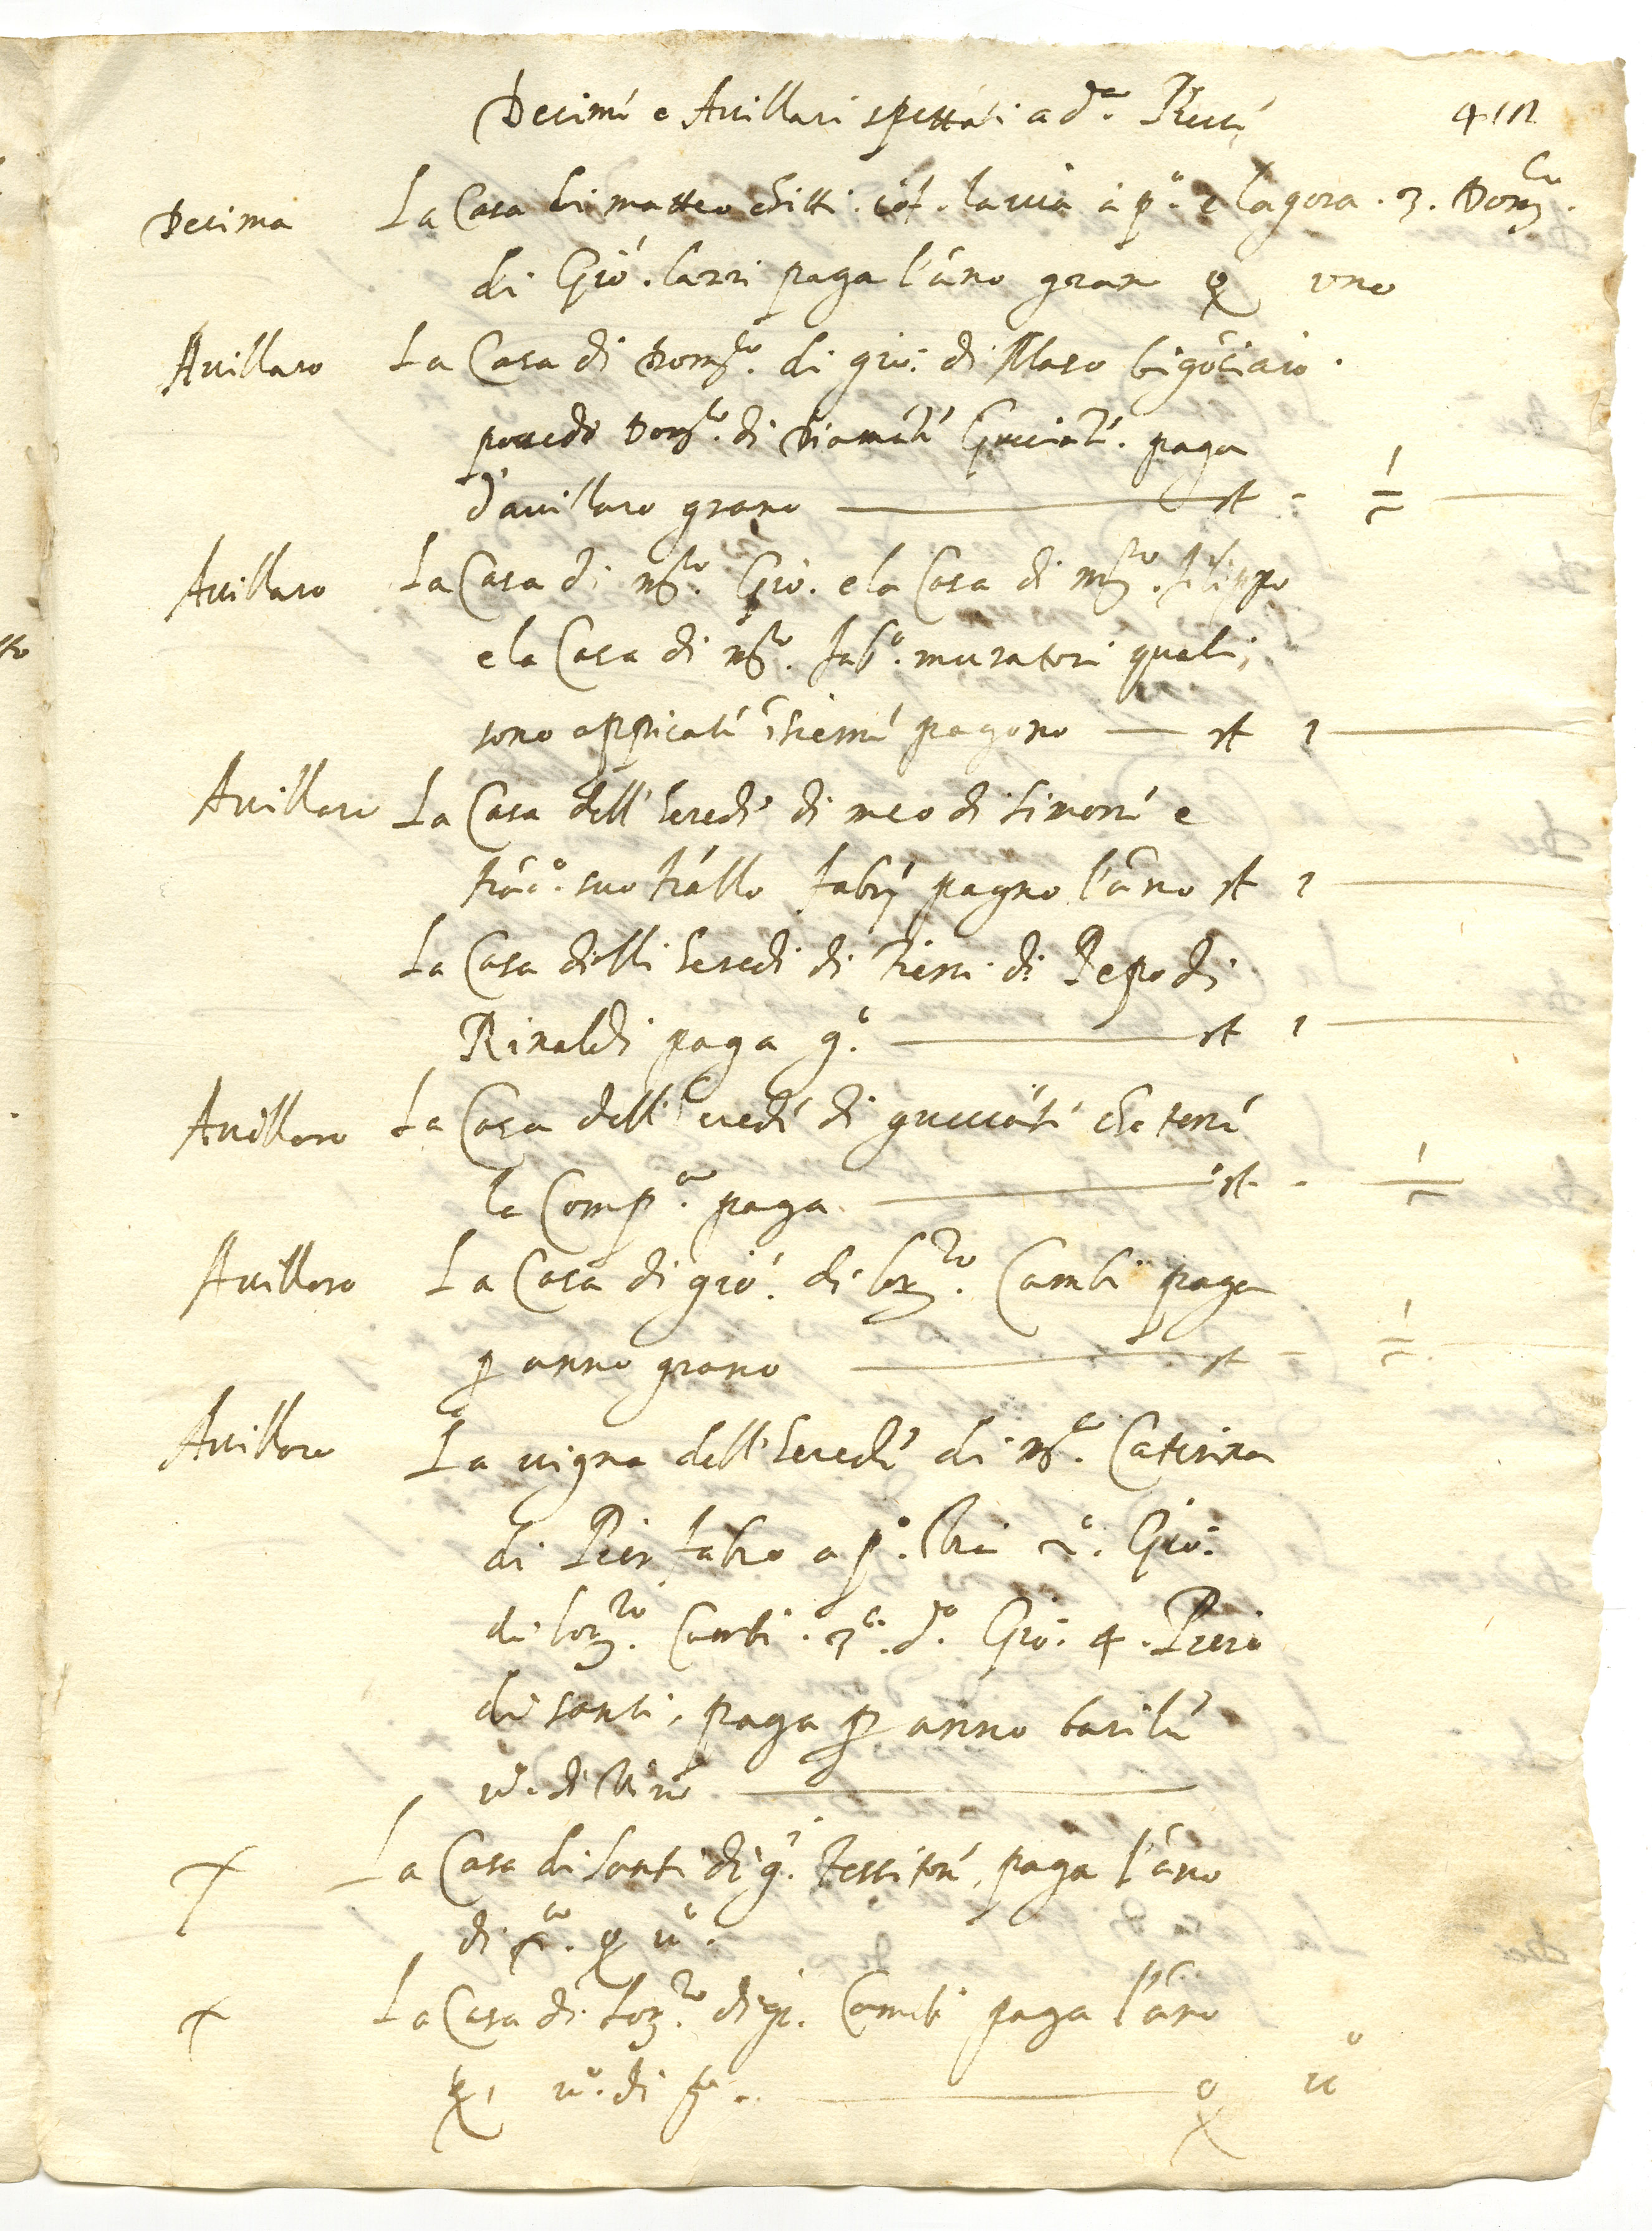 Decime e Auillari spettati a d.ª Pieue
Decima La Casa di matteo Chitti . cōf . la uia à p.º 2 la gora . 3 . Dom.co
di Giō . lanzi paga l'āno gran q uno
Auillaro La Casa di Dom.co di gio: di Maso bigōciaio .
possede Dom.co di Diamāte Gucciati . paga
d'auillaro grano st - 1/2
Auillaro La Casa di m.ro Gio . e la Casa di m.ro filippo
e la Casa di m.ro fab.º muratori quali,
sono appicate īsieme pagono st 1
Auillaro La Casa dell'heredi di meo di simone e
frāc.º suo frāllo fabri pagno l'āno st 1
La Casa dilli heredi di di Pepo di
Rinaldi paga g.º st 1
Auillaro La Casa dell'eredi di gucciāti che tene
la Comp.ª paga st - 1/2
Auillaro La Casa di giō . di lor.zo Cambi paga
p anno grano st - 1/2
Auillaro La uigna dell'heredi di m.ª Caterina
di Pier fabro a p.º Via 2.º Gio:
di lor.zo Cambi . 3.º d.º Gio: 4 . Piero
di santi, paga p anno barile
u.º di Vino
La Casa di santi di g.i tessitore, paga l'āno
di q u.º
La Casa di Lor.zo di gi. Cambi paga l'āno
q 1 u.º di q u.º